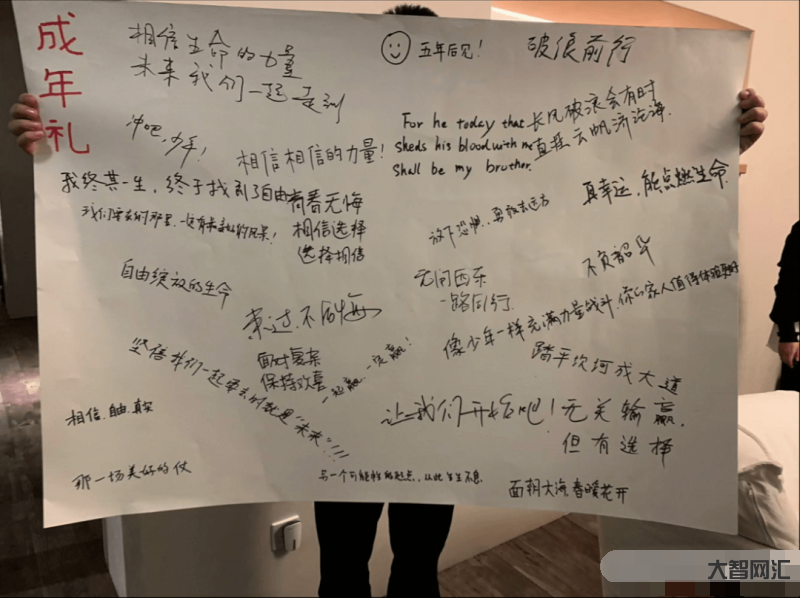 成年礼
相信生命的力量
未来我们一起走到
五年后见！
破浪前行
冲吧，少年！
相信相信的力量！
For he today that
sheds his blood with me
Shall be my brother.
长风破浪会有时
直挂云帆济沧海.
我终其一生，终于找到了自由
青春无悔
相信选择
选择相信
放下恐惧，勇敢去远方
真幸运，能点燃生命.
自由绽放的生命
无问西东
一路同行.
不负韶华
来过.不后悔
面对复杂
保持欢喜
一起赢，一定赢！
像少年一样充满力量战斗.你的家人值得体验更好
踏平坎坷成大道
相信.自由.真实
让我们开始吧！
无关输赢，
但有选择
那一场美好的仗
另一个可能性的起点，从此生生不息.
面朝大海，春暖花开
大智网汇